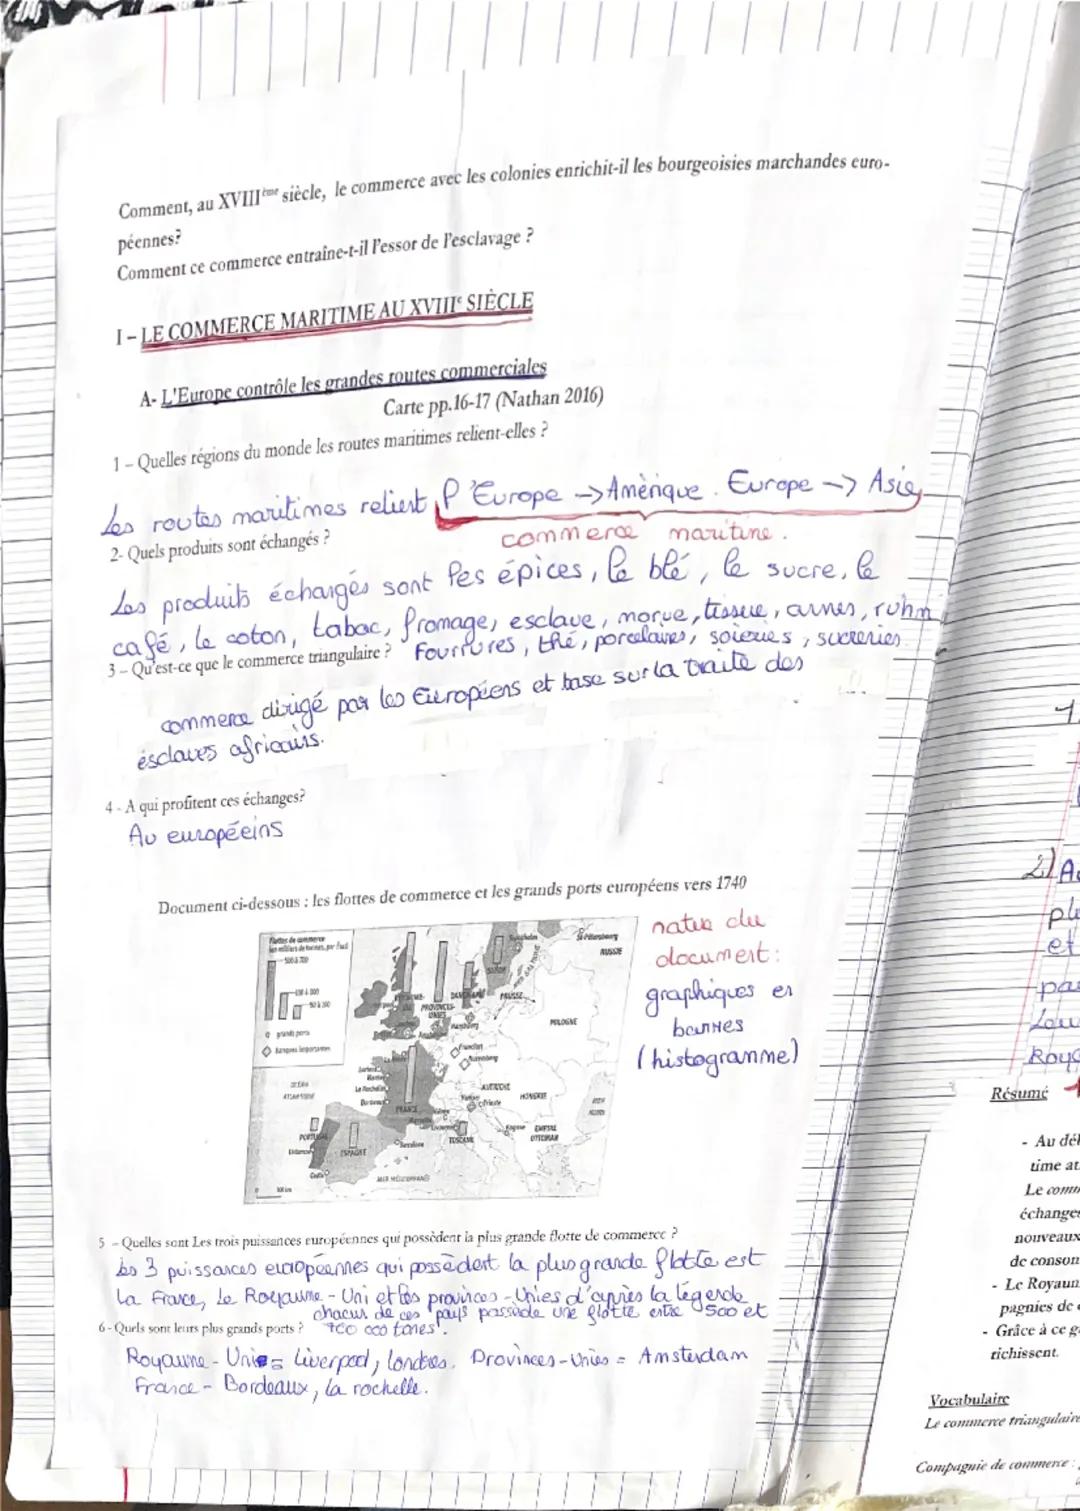 Comment, au XVIIIème siècle, le commerce avec les colonies enrichit-il les bourgeoisies marchandes euro-
péennes?
Comment ce commerce entraîne-t-il l'essor de l'esclavage ?
I - LE COMMERCE MARITIME AU XVIIIe SIÈCLE
A- L'Europe contrôle les grandes routes commerciales
Carte pp.16-17 (Nathan 2016)
1 - Quelles régions du monde les routes maritimes relient-elles ?
Les routes maritimes relient l'Europe -> Amérique. Europe -> Asie
commerce maritime.
2- Quels produits sont échangés ?
Les produits échangés sont les épices, le blé, le sucre, le
café, le coton, tabac, fromage, esclave, morue, tissue, armes, ruhm
fourrures, thé, porcelaines, soieries, sucreries.
3 - Qu'est-ce que le commerce triangulaire ?
commerce dirigé par les Européens et base sur la traite des
esclaves africains.
4 - A qui profitent ces échanges?
Au européeins
Document ci-dessous : les flottes de commerce et les grands ports européens vers 1740
document :
graphiques en
barres
(histogramme)
Flottes de commerce
500 à 700
grands ports
Banques importantes
OCÉAN
ATLANTIQUE
Stockholm
St-Pétersbourg
RUSSIE
SUÈDE
DANEMARK
PRUSSE
PROVINCES-
UNIES
Hambourg
POLOGNE
Francfort
Nuremberg
La Rochelle
Bordeaux
FRANCE
AUTRICHE
HONGRIE
Trieste
MER
NOIRE
PORTUGAL
ESPAGNE
Barcelone
TOSCANE
EMPIRE
OTTOMAN
Cadix
MER MÉDITERRANÉE
5 - Quelles sont Les trois puissances européennes qui possèdent la plus grande flotte de commerce ?
Les 3 puissances européennes qui possèdent la plus grande flotte est
La France, Le Royaume-Uni et les provinces-Unies d'après la légende
chacun de ces pays possède une flotte entre 500 et
700 000 tones.
6 - Quels sont leurs plus grands ports ?
Royaume-Unie = Liverpool, londres. Provinces-Unies = Amsterdam
France - Bordeaux, la rochelle.
2) Au
et
Résumé
- Au dé
time at
Le comm
échanges
nouveaux
de conson
- Le Royaum
pagnies de
- Grâce à ce g
richissent.
Vocabulaire
Le commerce triangulaire
Compagnie de commerce :